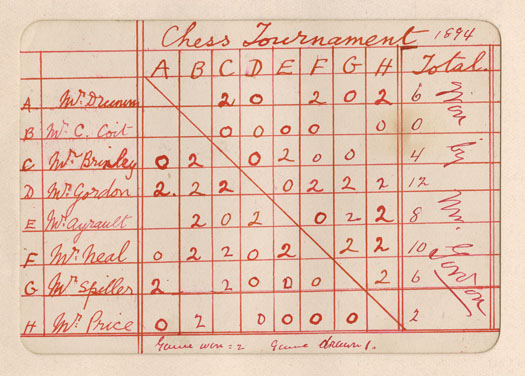 Chess Tournament 1894
A B C D E F G H Total
A Mr Drumm 2 0 2 0 2 6
B Mr C. Coit 0 0 0 0 0 0
C Mr Brinley 0 2 0 2 0 0 4
D Mr Gordon 2 2 2 0 2 2 2 12
E Mr Ayrault 2 0 2 0 2 2 8
F Mr Neal 0 2 2 0 2 2 2 10
G Mr Spiller 2 2 0 0 0 2 6
H Mr Price 0 2 0 0 0 0 2
Game won = 2 Game drawn 1.
Won by Mr. Gordon